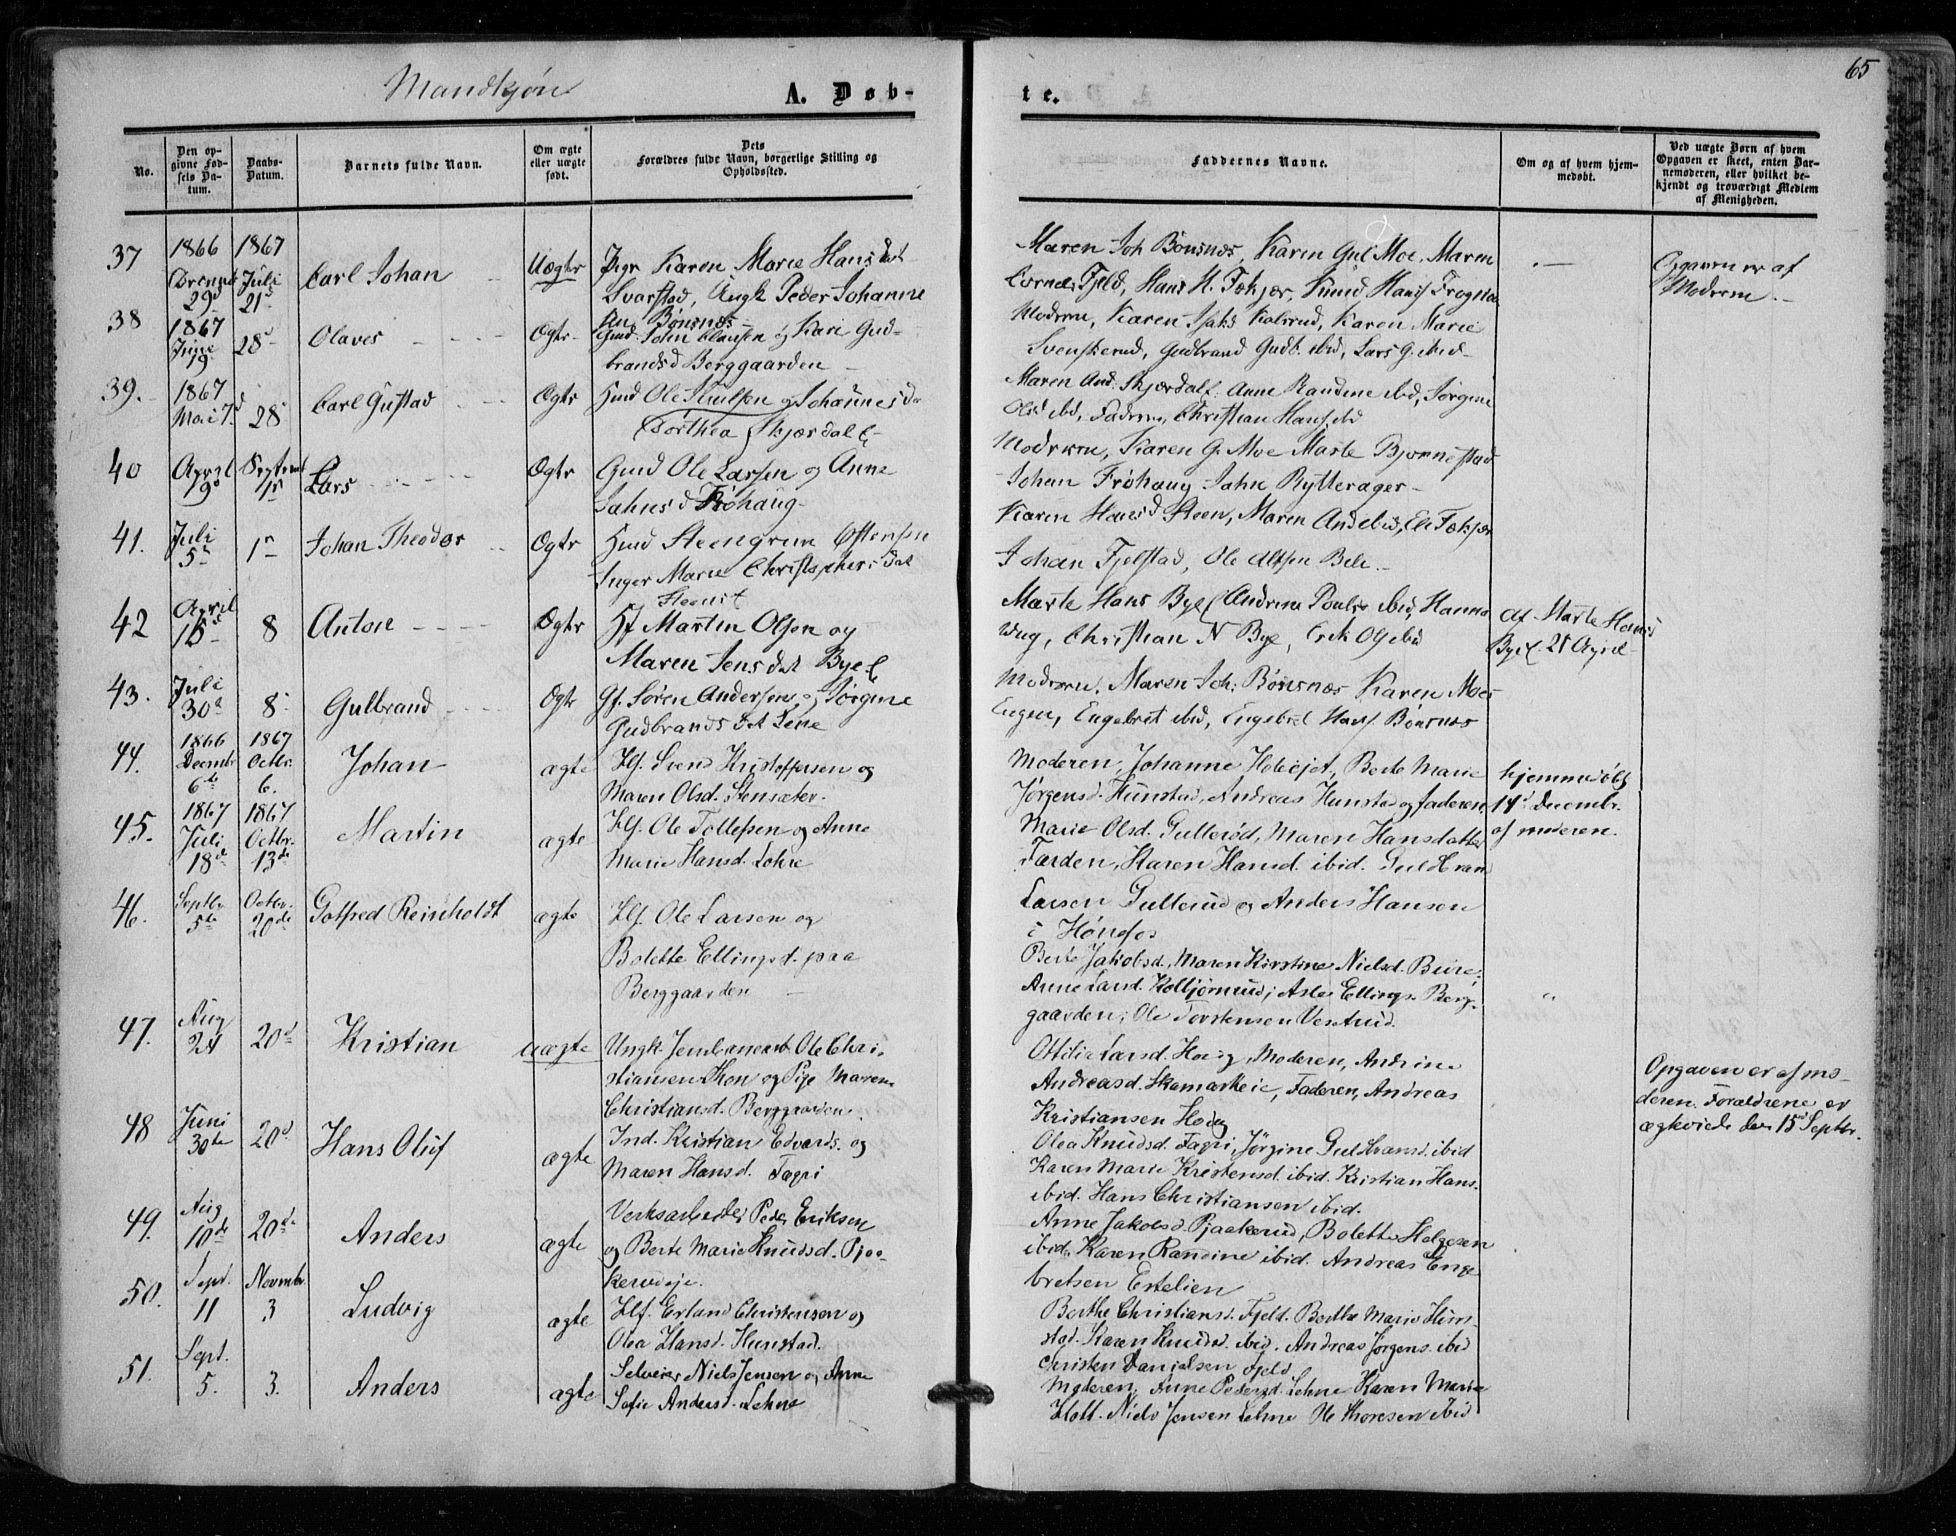 65
Mandkjøn
A. Døb-
te.
No.
Den op-
givne Fød-
sels Da-
tum.
Daabs-
Datum.
Barnets fulde Navn.
Om ægte
eller uægte
født.
Dets
Forældres fulde Navn, borgerlige Stilling og
Opholdssted.
Faddernes Navne.
Om og af hvem hjem-
medøbt.
Ved uægte Børn af hvem
Opgaven er skeet, enten Bar-
nemoderen, eller hvilket be-
kjendt og troværdigt Medlem
af Menigheden.
37
1866
29d
1867
Juli
21d
Carl Johan
Uægte
Pige Karen Marie Hansdat
Svarstad, Ungk Peder Johanne
sen Bønsnæs
Maren Joh Bønsnæs, Karen Gul Moe, Maren
Fjeld, Hans H. Fekjær, Knud Hans Frogstad
Opgaven er af
Moderen
38
1867
Juni
19
28d
Olaves
Ægte
John Clausen og Kari Gud-
brandsd Berggaarden
Moderen, Karen Kolsrud, Karen Marie
Svenskerud, Gudbrand Gudb. ibid, Lars G. ibid
39.
1867
Mai 7d
28
Carl Gustad
Ægte
Ole og Johannesd
Dorthea Skjærdal
Maren And. Skjærdal, Anne Randine ibid, Jørgine
Olsd ibid, Faderen, Christian Hans ibid
40
April
19d
Septembr
1st
Lars
Ægte
Gmd Ole Larsen og Anne
Jahnsd Frøhaug
Moderen, Karen G. Moe Marte Bjønnestad
Johan Frøhaug Jahn Rytterager
41.
Juli
5
1
Johan Theodor
Ægte
Hmd Steengrim Østensen
Inger Marie Christophersdat
Karen Hansd Steen, Maren And ibid, Eli Fekjær
Johan Fjelstad, Ole
42
April
15
8
Anton
Ægte
Hf Martin Olsen og
Maren Jensdat Bye
Marte Hans Bye Andrine Pouls ibid, Hanna
Christian N Bye, Erik Ols ibid
Af Marte Hans
Bye 21 April
43.
Juli
30d
8
Gulbrand
Ægte
Gf. Søren Andersen og Jørgine
Gudbrandsdt
Moderen. Maren Joh: Bønsnæs Karen Moes
Eugen, Engebret ibid, Engebret Hans Bønsnæs
44.
1866
Decmbr
6te
1867
Octbr.
6.
Johan
ægte
Hf. Svend Kristoffersen og
Maren Olsd. Stensæter.
Moderen, Johanne Berte Marie
Jørgensd. Hunstad, Andreas Hunstad og faderen.
hjemmedøbt
14d Decembr.
af moderen.
45.
1867
Juli
18d
1867
Octbr.
13de
Martin
ægte
Hf. Ole Tollefsen og Anne
Marie Hansd. Lohre
Marie Olsd. Gullerød, Maren Hansdatter
Farden, Karen Hansd. ibid. Gulbran
Larsen Gullerud og Anders Hansen
i Hønefos
46.
Septbr
5te
Octbr.
20de
Gotfred Reinholdt
ægte
Hf. Ole Larsen og
Bolette Ellingsd. paa
Berggaarden
Berte Jakobsd. Maren Kirstine Nielsd. Bure,
Anne Larsd. Kolbjørnrud, Aslei Ellings. Berg-
gaarden, Ole Torstensen Vestrud.
47.
Aug
24
20d
Kristian
uægte
Ungk. Ole Chri-
stiansen Thon og Pige Maren
Christiansd. Berggaarden.
Ottilia Larsd. Houg, Moderen, Andrine
Andreasd. Skamarkeie, Faderen, Andreas
Kristiansen Houg
Opgaven er af mo-
deren. Forældrene er
ægteviede den 15d Septbr.
48
Juni
30te
20d.
Hans Oluf
ægte
Ind. Kristian Edvards. og
Maren Hansd. Fagri
Olea Knudsd. Fagri, Jørgine Gulbransd. ibid
Karen Marie Kristensd. ibid. Kristian Hans.
ibid. Hans Christiansen ibid.
49.
Aug
10de
20de
Anders
ægte
Verksarbeider Peder Eriksen
og Berte Marie Knudsd. Pjaa-
kerudeje.
Anne Jakobsd. Pjaakerud, Bolette Helgesen
ibid. Karen Randine ibid. Andreas Enge
bretsen Ertelien
50.
Sept.
11
Novmbr.
3
Ludvig
ægte
Hf. Erland Christensen og
Olea Hansd. Hunstad.
Berthe Christiansd. Fjeld. Berthe Marie Hun-
stad. Karen Knudsd. ibid. Andreas Jørgens. ibid
Christen Danielsen Fjeld
51.
Sept.
5.
3.
Anders
ægte
Selveier Niels Jensen og Anne
Sofie Andersd. Lehne
Moderen, Anne Pedersd. Lehne Karen Marie
Holt. Niels Jensen Lehne Ole Thoresen ibid